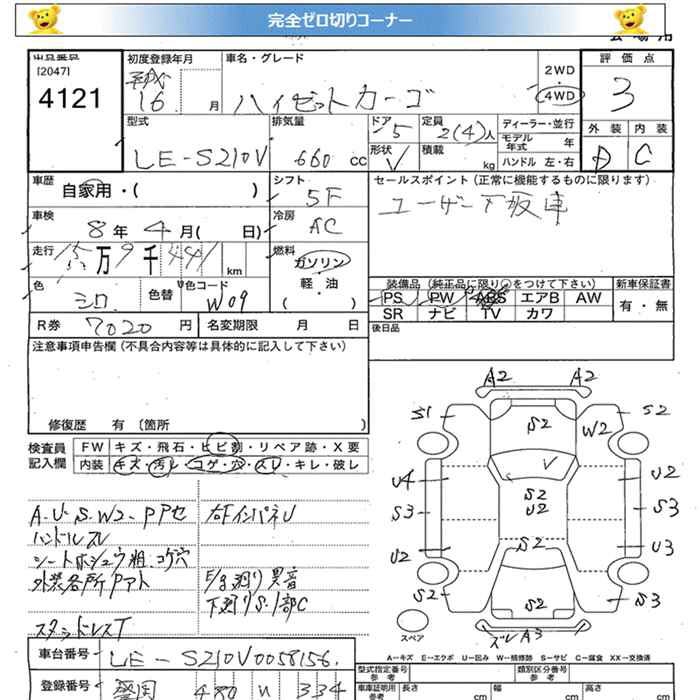 完全ゼロ切りコーナー
出品番号
[2047]
4121
初度登録年月
平成
16 月
車名・グレード
ハイゼットカーゴ
2WD
4WD
評価点
3
外装 内装
D C
型式
LE-S210V
排気量
660 cc
ドア 5
形状 V
定員 2(4)人
積載 kg
ディーラー・並行
モデル年式 年
ハンドル 左・右
車歴
自家用・( )
シフト
5F
セールスポイント (正常に機能するものに限ります)
ユーザー下取車
車検
8年 4月( 日)
冷房
AC
走行
15万9千441 km
燃料
ガソリン
軽・油
( )
色
シロ
色替
色コード
W09
装備品 (純正品に限り○をつけて下さい)
PS PW ABS エアB AW
SR ナビ TV カワ
新車保証書
有・無
R券 7020 円
名変期限 月 日
後日品
注意事項申告欄 (不具合内容等は具体的に記入して下さい)
修復歴 有 〔箇所 〕
検査員
記入欄
FW キズ・飛石・ヒビ割・リペア跡・X要
内装 キズ・汚レ・コゲ・穴・スレ・キレ・破レ
A・U・S・W2・Pアセ
ハンドルスレ
シートホシュウ粗.コゲ穴
外装各所Pアト
スタッドレスT
右FインパネU
E/g廻り異音
下廻りS・1部C
A2 A2
S1 S2 W2 S2
V
U4 S2 U2 U2
S3 S3
U2 S2 U3
S2 S2 S3
ズレA3
スペア
A-キズ E-エクボ U-凹み W-補修跡 S-サビ C-腐食 XX-交換済
車台番号
LE-S210V0058156.
登録番号
480 334
型式指定番号
参考
類別区分番号
参考
車庫証明用
参考
長さ cm
幅 cm
高さ cm